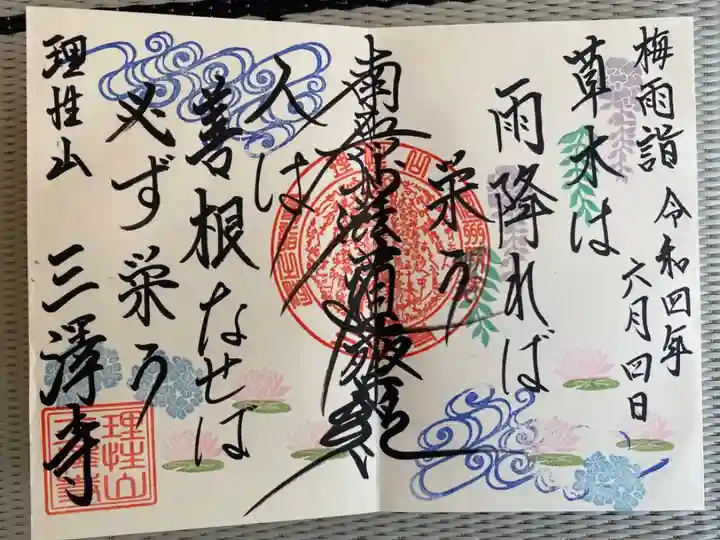 梅雨詣 令和四年
六月四日
草木は
雨降れば
栄う
南無妙法蓮華経
人は
善根なせば
必ず栄う
理性山 三澤寺
理性山